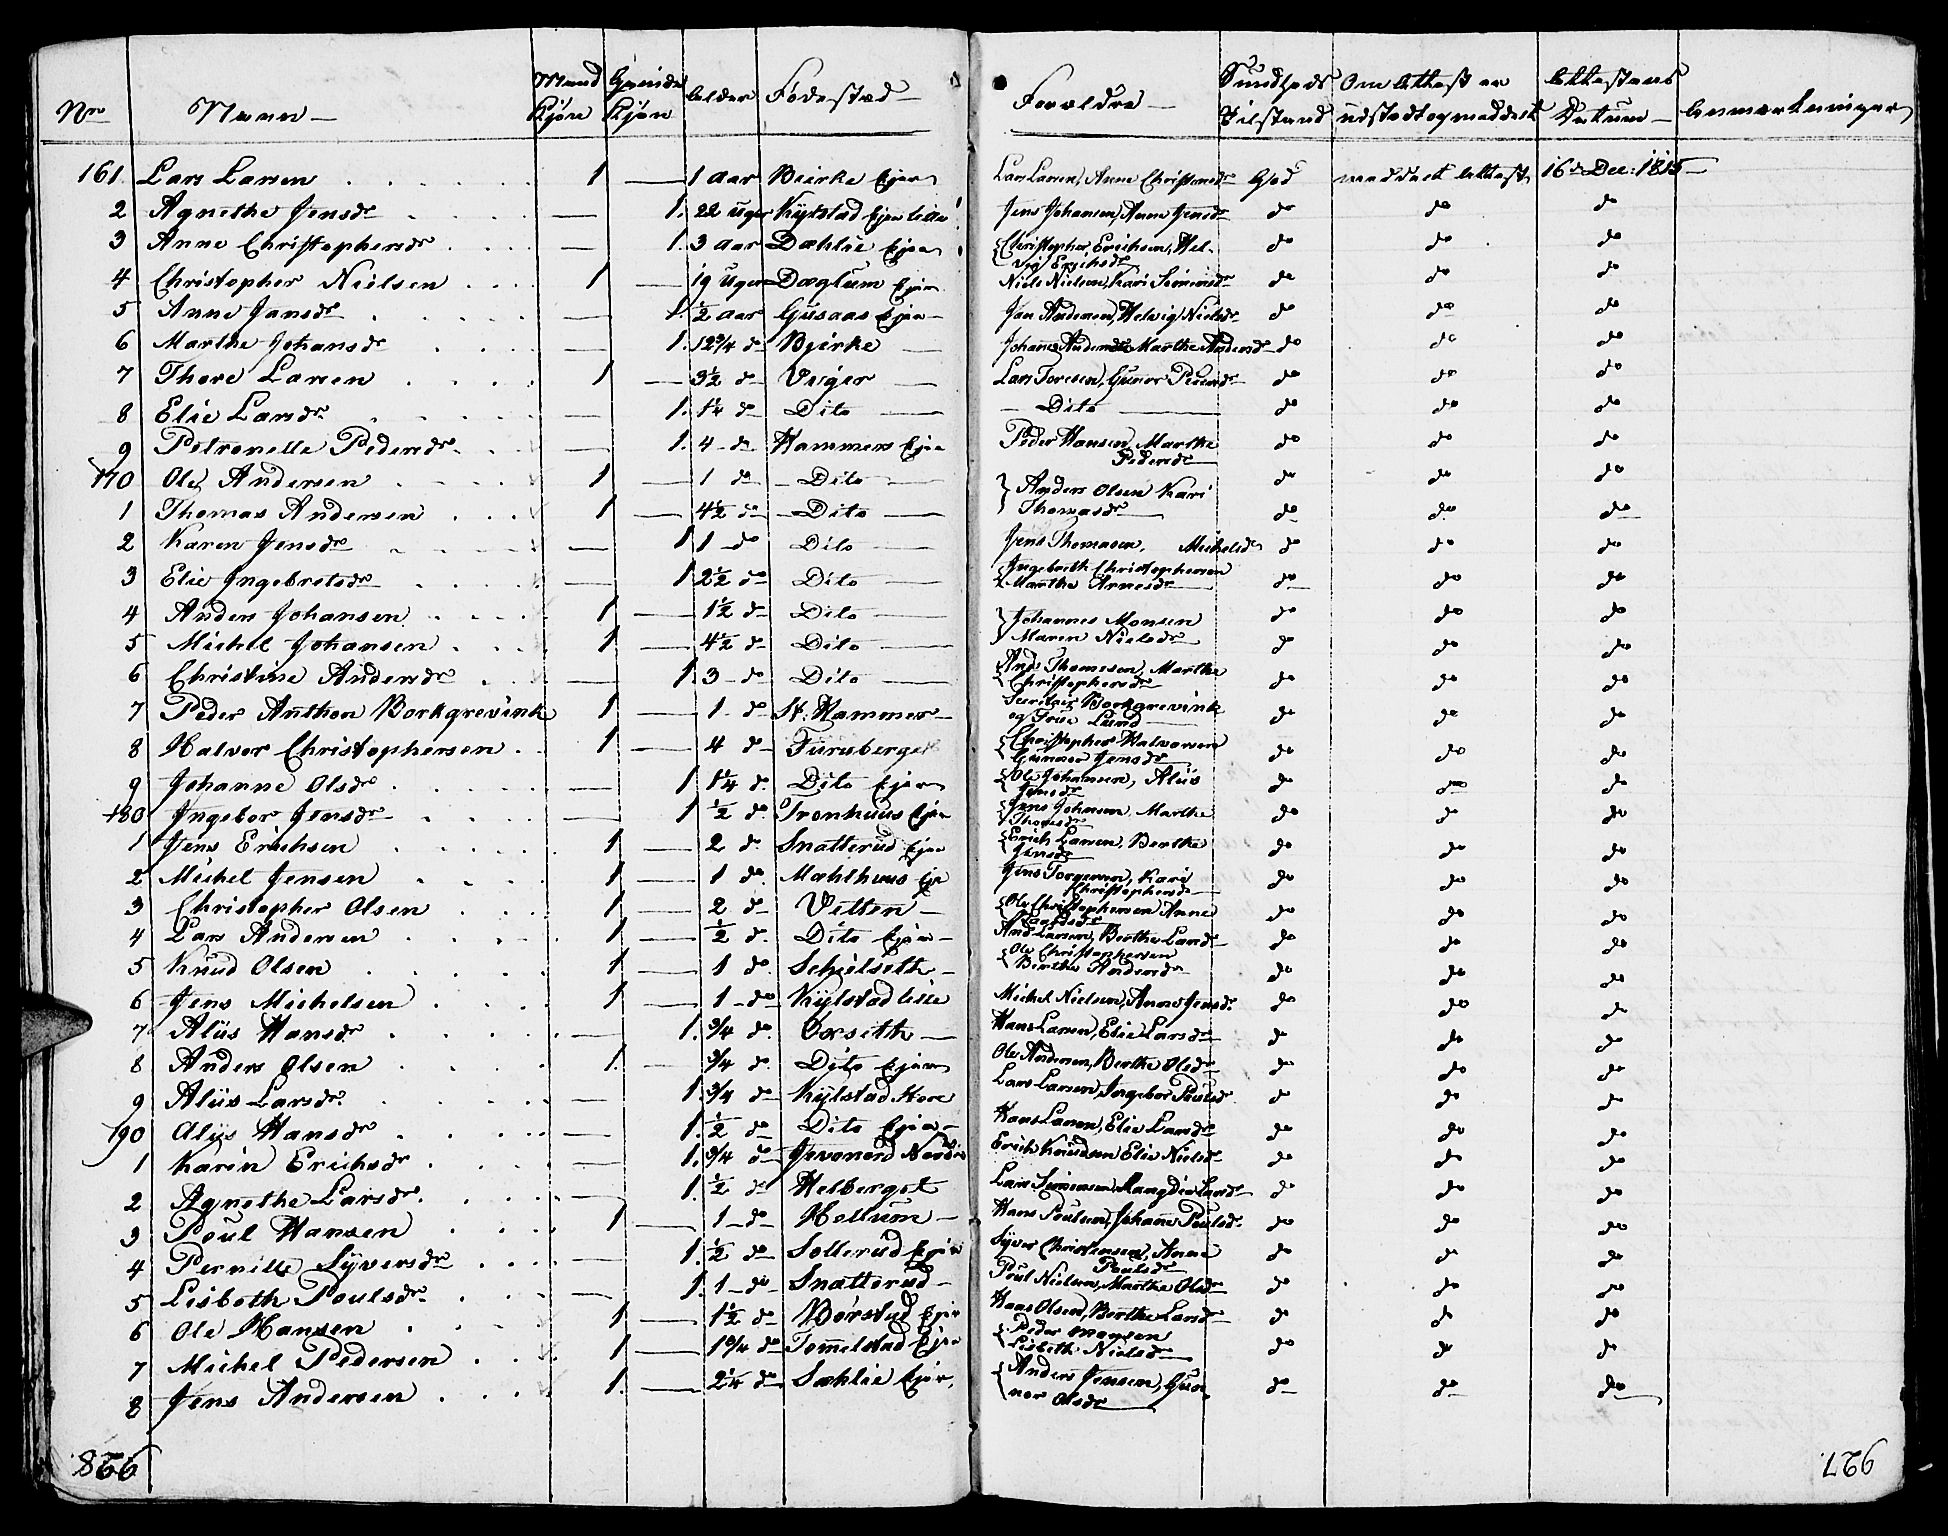 Nr Navn Mand Kjøn Qvinde Kjøn Alder Fødested Forældre Sundheds Tilstand Om Attest er udstedt og meddelt Attestens Datum Anmærkninger
161 Lars Larsen 1 — 1 aar Beirke Ejer Lars Larsen, Anne Christensdr God meddelt Attest 16 Dec: 1815
2 Agnethe Jensdr — 1. 22 uger Kylstad Ejer lille Jens Johansen, Anne Jensdr do do do
3 Anne Christophersdr — 1. 3 aar Dæhlie Ejer Christopher Erichsen, Helvig Erichsdr do do do
4 Christopher Nielsen 1 — 19 Uger Døglum Ejer Niels Nielsen, Kari Simensdr do do do
5 Anne Jansdr — 1. ½ aar Gusaas Ejer Jan Andersen, Helvig Nielsdr do do do
6 Marthe Johansdr — 1. 12¾ do Bjerke — Johannes Andersen Marthe Andersdr do do do
7 Thore Larsen 1 — 3½ do Veiger — Lars Toresen, Gunor Pedersdr do do do
8 Elie Larsdr — 1. 1¼ do Dito — Dito — do do do
9 Petronelle Pedersdr — 1. 4 do Hammers Ejer Peder Hansen, Marthe Pedersdr do do do
170 Ole Andersen 1 — 1 do Dito — Anders Olsen Kari do do do
1 Thomas Andersen 1 — 4½ do Dito — Thomasdr do do do
2 Karen Jensdr — 1 1 do Dito — Jens Thomasen, Michelsdr do do do
3 Elie Ingebretsdr — 1. 2½ do Dito — Ingebreth Christophersen Marthe Arnesdr do do do
4 Anders Johansen 1 — 1½ do Dito — Johannes Monsen do do do
5 Michel Johansen 1 — 4½ do Dito — Maren Nielsdr do do do
6 Christine Andersdr — 1. 3 do Dito — Ands Thomesen, Marthe Christophersdr do do do
7 Peder Anthon Borkgrevink 1 — 1 do St. Hammer — Borkgrevink og Frue Lund do do do
8 Halvor Christophersen 1 — 4 do Furuberget Christopher Halvorsen Gunnor Jensdr do do do
9 Johanne Olsdr — 1 1¼ do Dito Ejer Ole Johansen, Aliis Jensdr do do do
180 Ingebor Jensdr — 1 ½ do Tronhuus Ejer Jens Johnsen Marthe Thoresdr do do do
1 Jens Erichsen 1 — 2 do Snatterud Ejer Erich Larsen, Berthe Jensdr do do do
2 Michel Jensen 1 — 1 do Mæhlhuus Ejer Jens Torgersen, Kari Christophersdr do do do
3 Christopher Olsen 1 — 2 do Vetten — Ole Christophersen Anne do do do
4 Lars Andersen 1 — ½ do Dito Ejer — And Larsen, Berthe Larsdr do do do
5 Knud Olsen 1 — 1 do Schielseth — Ole Christophersen Berthe Andersdr do do do
6 Jens Michelsen 1 — 1 do Kylstad lille Michel Nielsen, Anne Jensdr do do do
7 Aliis Hansdr — 1. ¾ do Oxseth — Hans Larsen, Elie Larsdr do do do
8 Anders Olsen 1. — ¾ do Dito Ejer Ole Andersen, Berthe Olsdr do do do
9 Aliis Larsdr 1. ¾ do Kylstad Store Lars Larsen, Ingebor Poulsdr do do do
190 Aliis Hansdr — 1. ½ do Dito Ejer — Hans Larsen, Elie Larsdr do do do
1 Karin Erichsdr — 1. ¾ do Jevanord Nordre Erich Knudsen Elie Nielsdr do do do
2 Agnethe Larsdr — 1. ½ do Helberget Lars Simensen Mangdie Larsdr do do do
3 Poul Hansen 1 — 1 do Hellum — Hans Poulsen, Johanne Poulsdr do do do
4 Pernille Syversdr — 1. ½ do Sollerud Ejer Syver Christensen, Anne Poulsdr do do do
5 Lisbeth Poulsdr — 1. 1 do Snatterud — Poul Nielsen, Marthe Olsdr do do do
6 Ole Hansen 1 — 1½ do Børstad Ejer Hans Olsen, Berthe Larsdr do do do
7 Michel Pedersen 1 — 1¾ do Tommelstad Ejer Peder Mogsen Lisbeth Nielsdr do do do
8 Jens Andersen 1. — 2¼ do Sæhlie Ejer, Anders Jensen, Gunnor Olsdr do do do
866 927